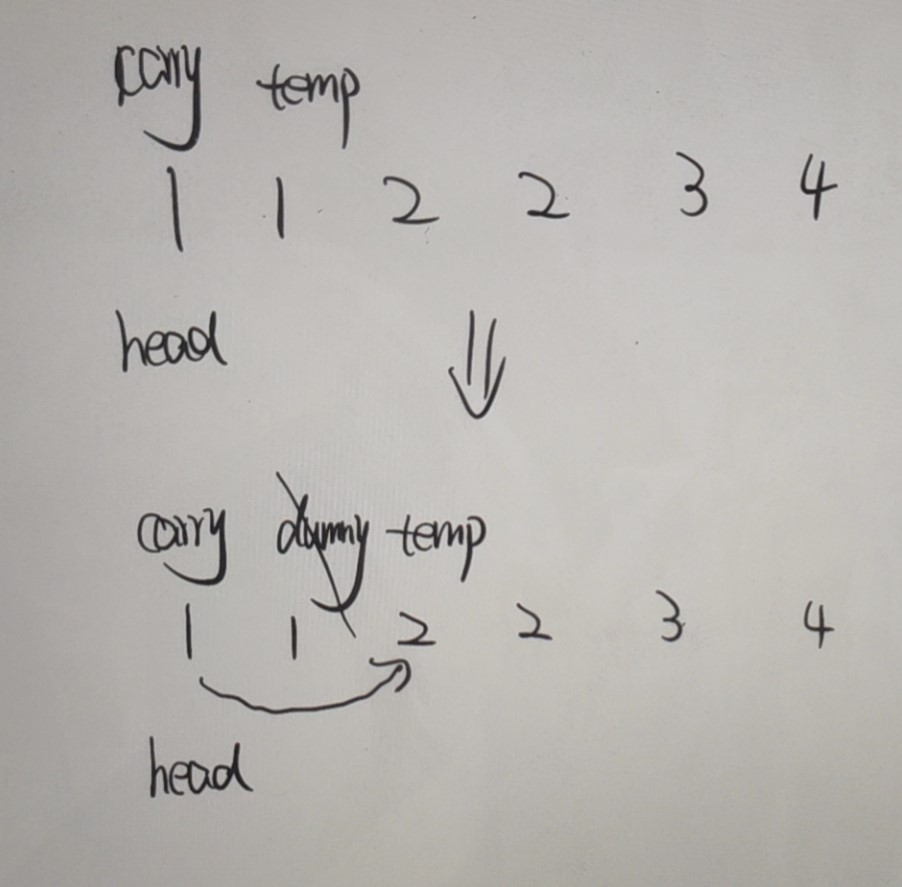 carry temp
1 1 2 2 3 4
head
carry dummy temp
1 1 2 2 3 4
head